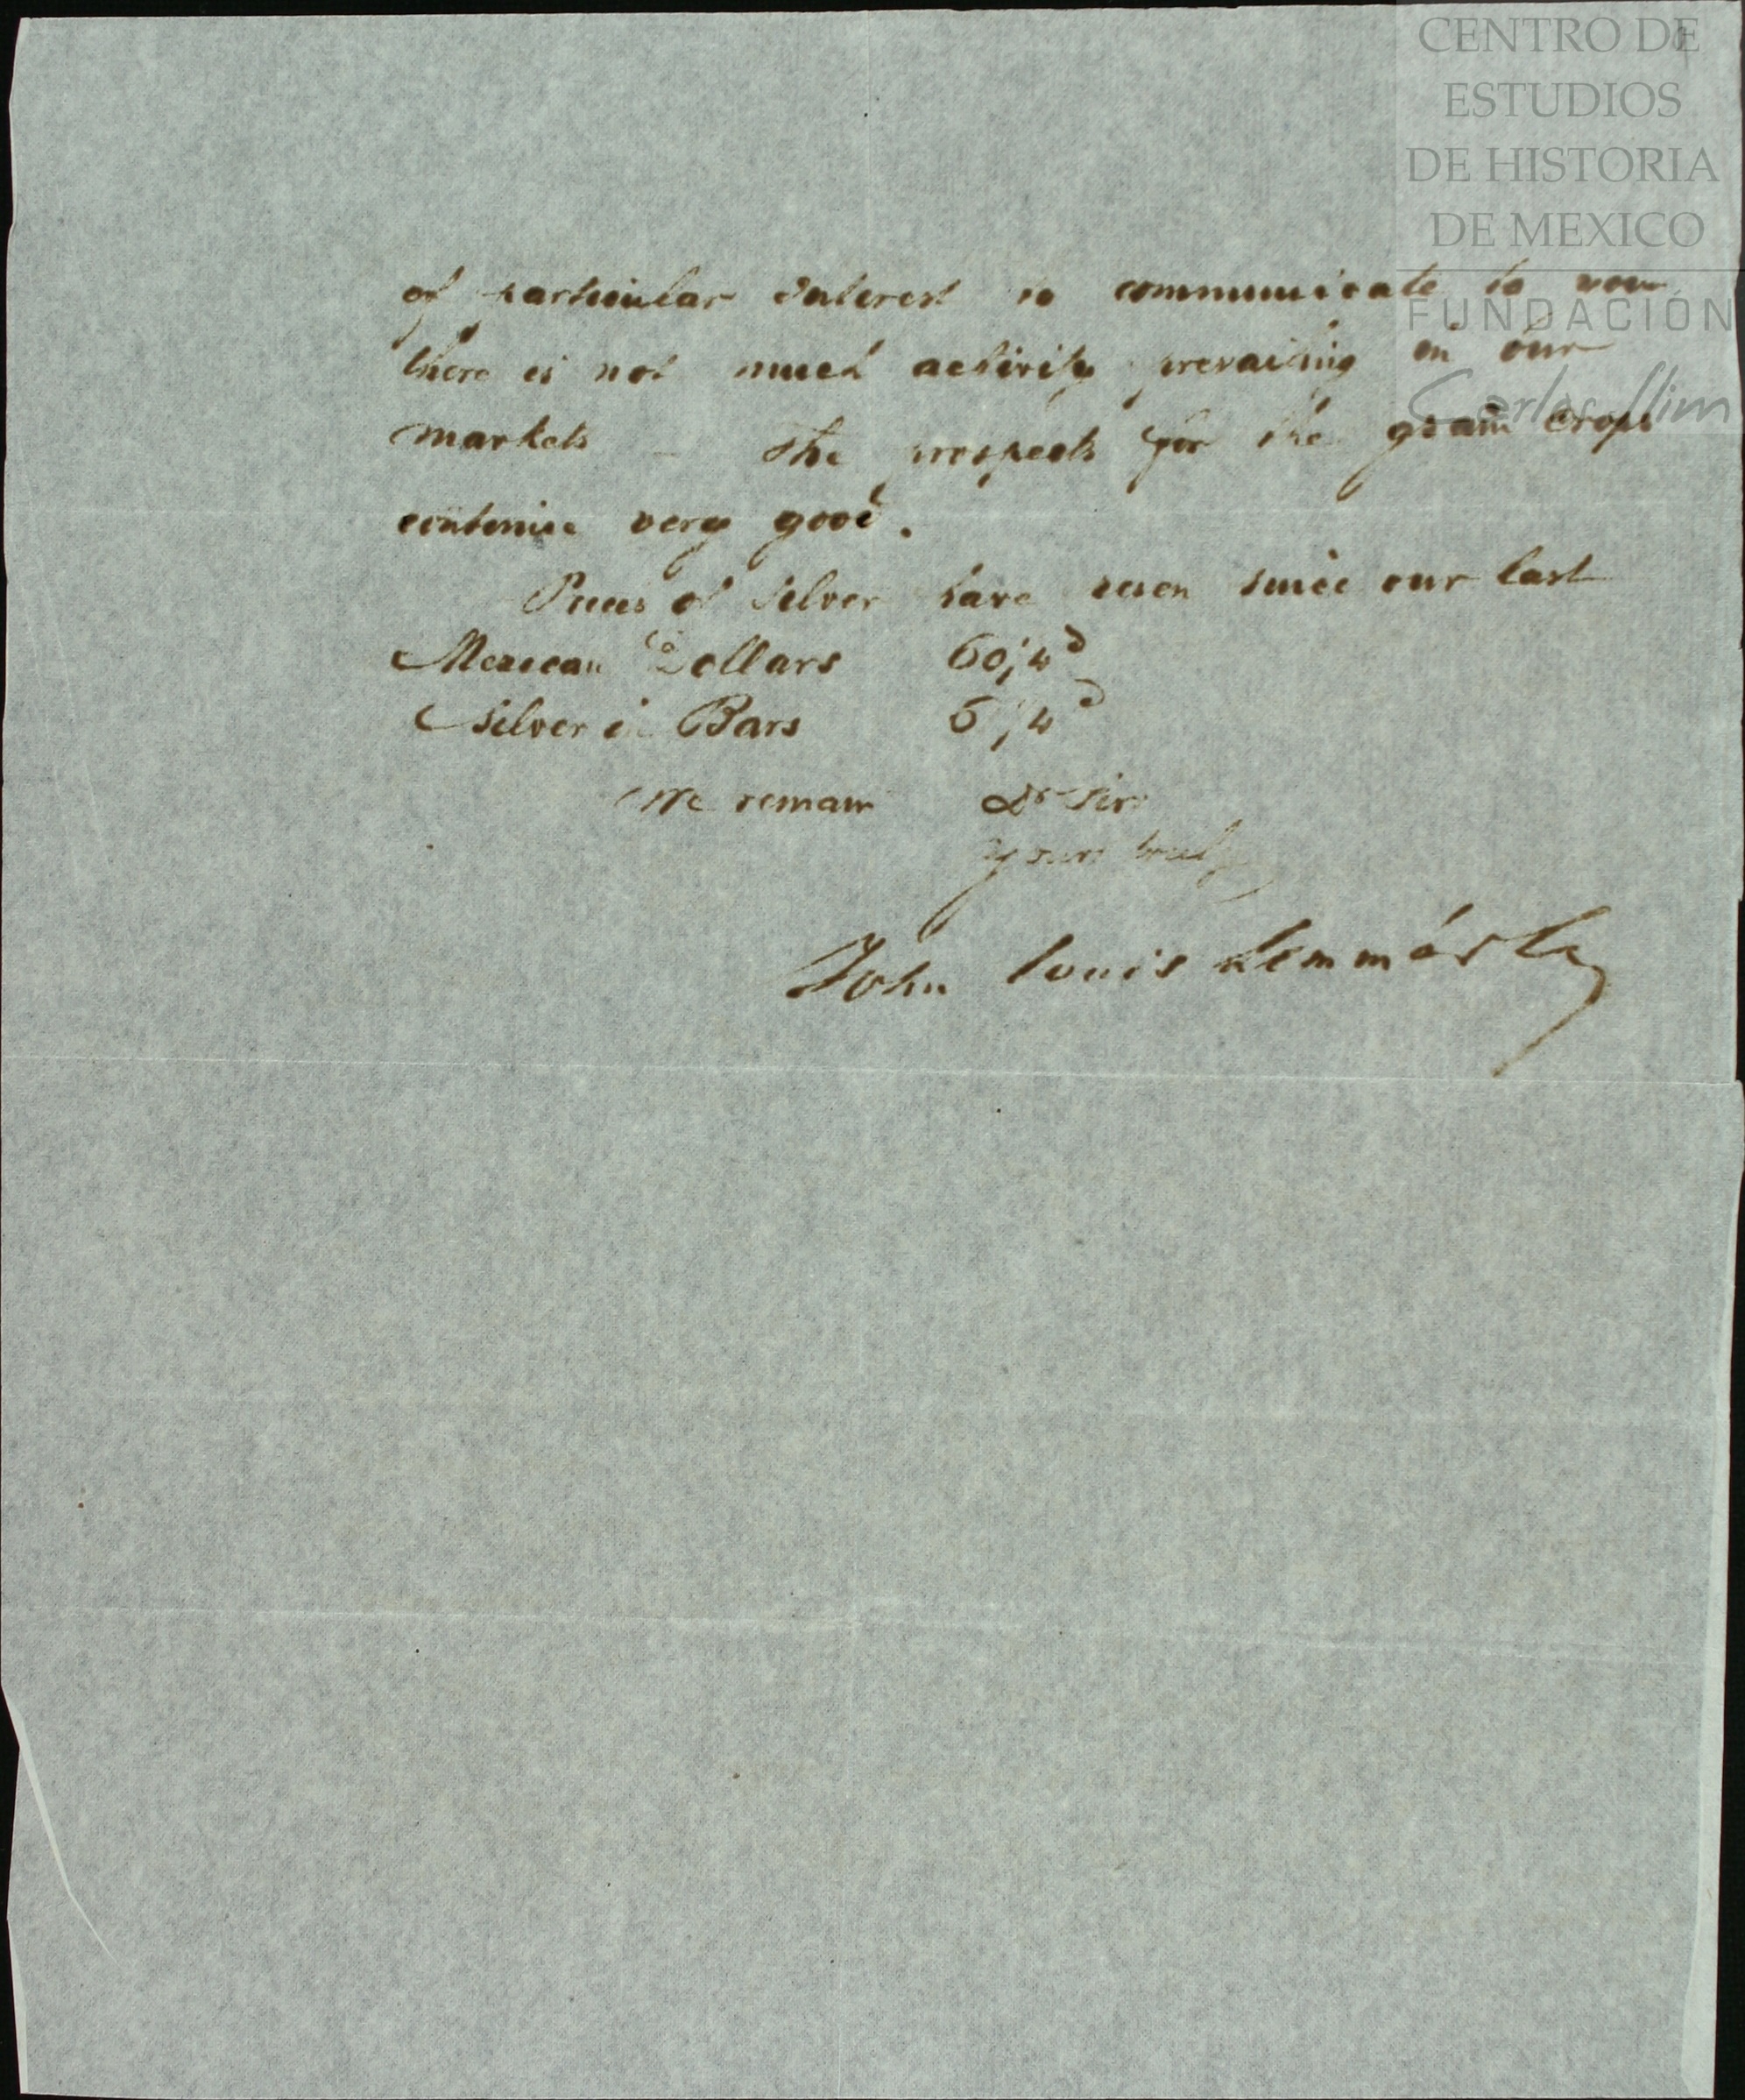 CENTRO DE
ESTUDIOS
DE HISTORIA
DE MEXICO
FUNDACIÓN
Carlos Slim
of particular interest to communicate to you
there is not much activity prevailing in our
markets – The prospects for the grain crops
continue very good.
Prices of Silver have risen since our last
Mexican Dollars 60¼d
Silver in Bars
We remain Dr Sir
yours truly
John Louis Lemmé & Co